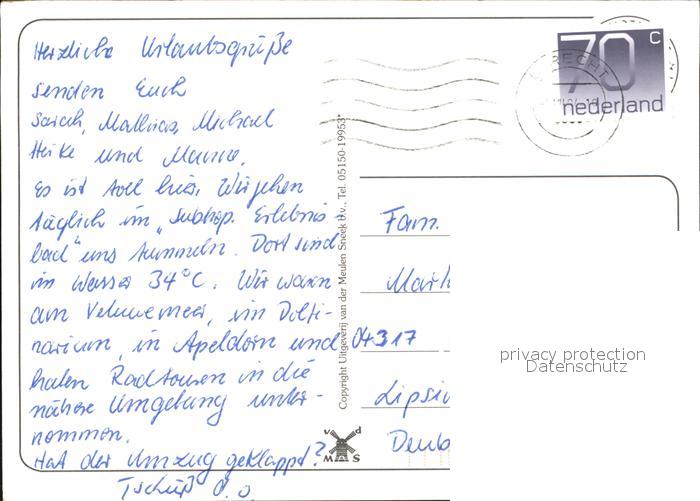 Herzliche Urlaubsgrüße
senden Euch
Sarah, Mathias, Michael
Heike und
Es ist toll hier. Wir gehen
täglich im „Subtrop. Erlebnis-
bad“ uns tummeln. Dort sind
im Wasser 34°C. Wir waren
am Veluwemeer, im Dolfi-
narium, in Apeldorn und
haben Radtouren in die
nähere Umgebung unter-
nommen.
Hat der Umzug geklappt?
Tschüß
Copyright Uitgeverij van der Meulen Sneek b.v., Tel. 05150-19953*
v d
M S
70 c
nederland
UTRECHT
Fam.
04317
Leipzi
Deut
privacy protection
Datenschutz